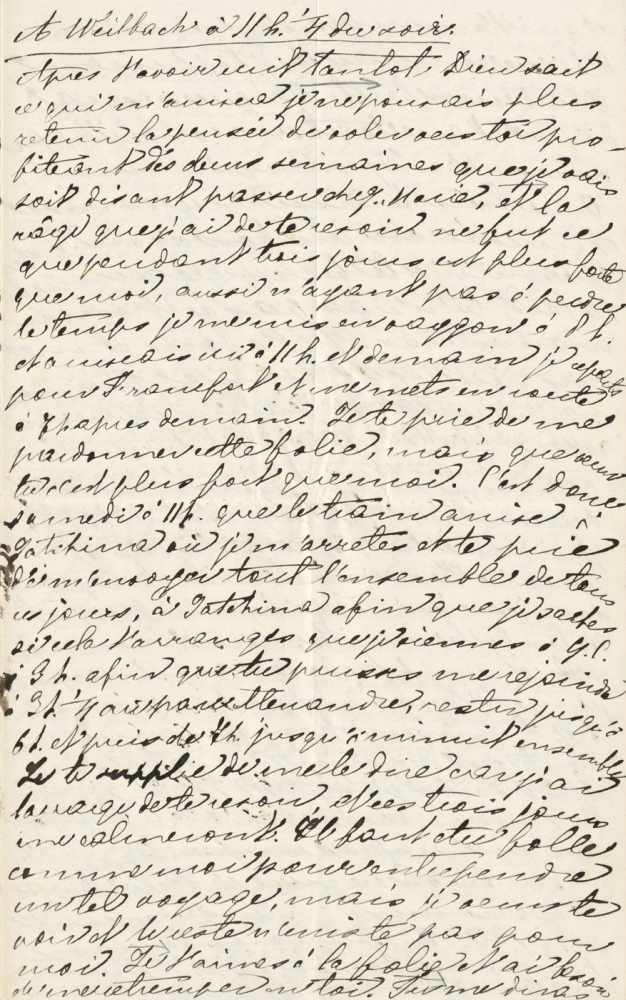 A Weilbach à 11 h. ¼ du soir.
Après t'avoir écrit tantot, Dieu sait
ce qui m'arrivera je ne pouvais plus
retenir la pensée de voler vers toi pro-
fitant des deux semaines que je vais
soit disant passer chez Marie, et la
râge que j'ai de te revoir ne fut ce
que pendant trois jours est plus forte
que moi, aussi n'ayant pas à perdre
le temps je me mis en waggon à 8 h.
et arrivais ici à 11 h. et demain je repars
pour Francfort et me mets en route
à 7 h apres demain. Je te prie de me
pardonner cette folie, mais que veux
tu c'est plus fort que moi. C'est donc
samedi à 11 h. que le train arrive à
Gatchina où je m'arrètes et te prie
de m'envoyer tout l'ensemble de tous
ces jours, à Gatchina afin que je saches
si cela t'arranges que je viennes à
à 3 h. afin que tu puisses me rejoindre
à 3 h. ¼ au pav. Alexandre, rester jusqu'à
6 h. et puis de h. jusqu'à minuit ensemble
Je te supplie de me le dire car j'ai
la rage de te revoir, et ces trois jours
me calmeront. Il faut etre folle
comme moi pour entreprendre
un tel voyage, mais je veux te
voir et le reste n'existe pas pour
moi. Je t'aimes à la folie et ai besoin
de me retremper en toi. Tu me diras